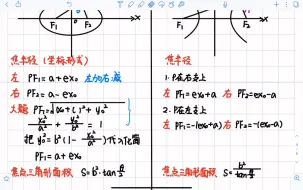 F₁ 0 F₂ x
焦半径 (坐标形式)
左 PF₁=a+ex₀ 左加右减
右 PF₂=a-ex₀
PF₁=√(x₀+c)²+y₀²
x₀²/a²+y₀²/b²=1
把 y₀²=b²(1-x₀²/a²)代入化简
PF₁=a+ex₀
焦点三角形面积 S=b²·tan θ/2
F₁ F₂ x
焦半径
1. P在右支上
左 PF₁=ex₀+a 右 PF₂=ex₀-a
2. P在左支上
左 PF₁=-(ex₀+a) 右 PF₂=-(ex₀-a)
焦点三角形面积 S=b²/tan θ/2